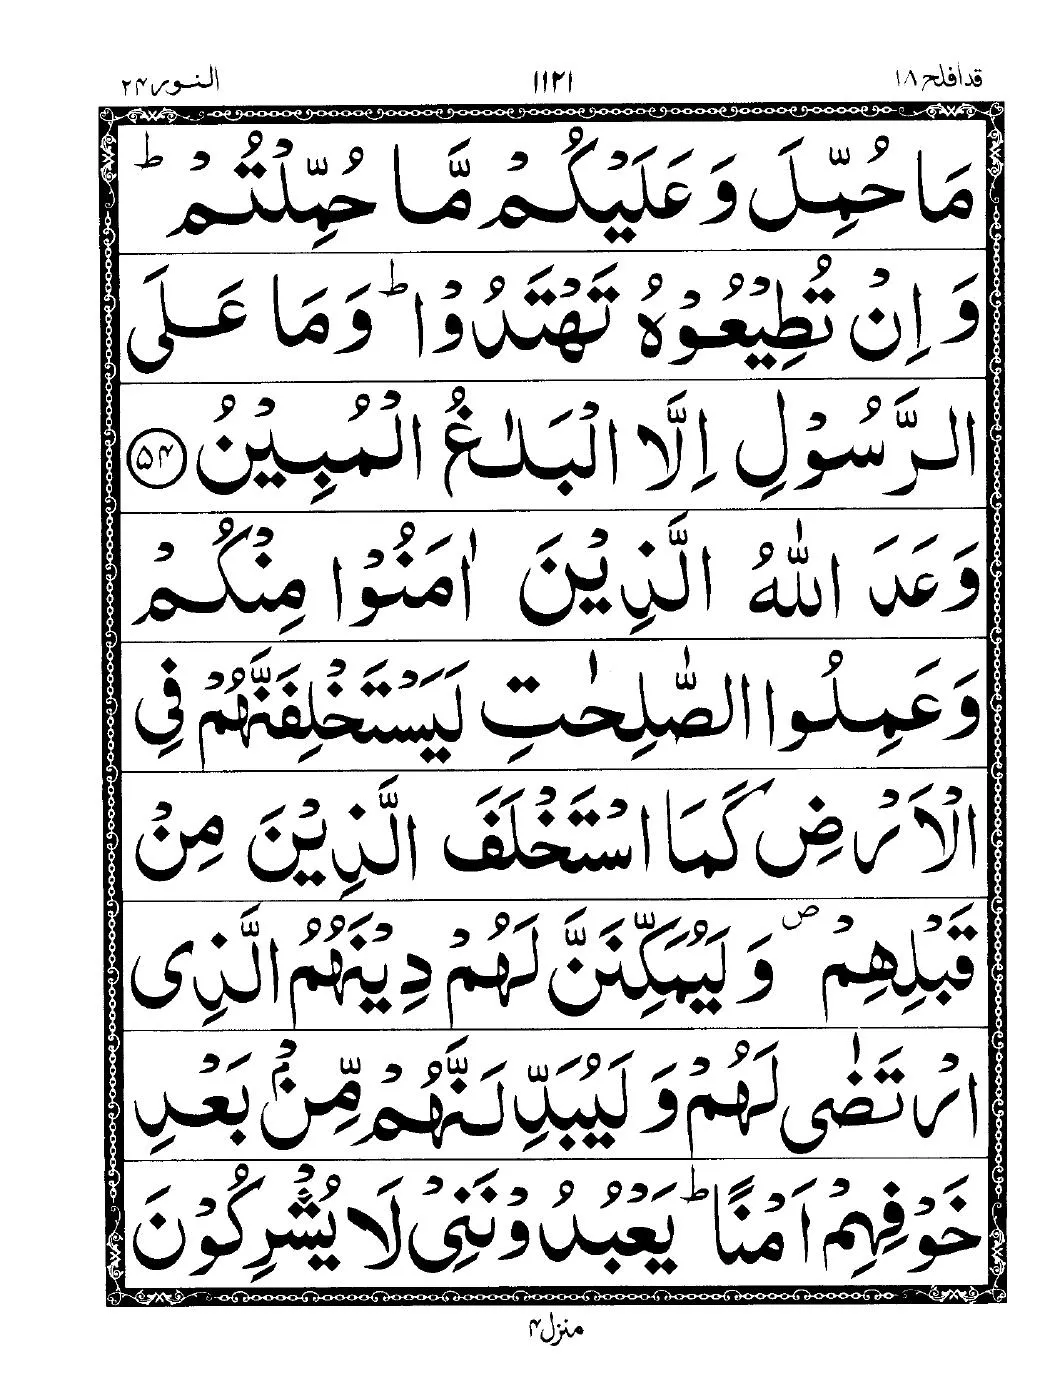 قدأفلح ١٨ ١١٢١ النور ٢۴
مَا حُمِّلَ وَعَلَيْكُمْ مَّا حُمِّلْتُمْ ؕ
وَاِنْ تُطِيْعُوْهُ تَهْتَدُوْا ؕ وَمَا عَلَى
الرَّسُوْلِ اِلَّا الْبَلٰغُ الْمُبِيْنُ ۵۴
وَعَدَ اللّٰهُ الَّذِيْنَ اٰمَنُوْا مِنْكُمْ
وَعَمِلُوا الصّٰلِحٰتِ لَيَسْتَخْلِفَنَّهُمْ فِي
الْاَرْضِ كَمَا اسْتَخْلَفَ الَّذِيْنَ مِنْ
قَبْلِهِمْ ۪ وَلَيُمَكِّنَنَّ لَهُمْ دِيْنَهُمُ الَّذِى
ارْتَضٰى لَهُمْ وَلَيُبَدِّلَنَّهُمْ مِّنْۢ بَعْدِ
خَوْفِهِمْ اَمْنًا ؕ يَعْبُدُوْنَنِىْ لَا يُشْرِكُوْنَ
منزل ۴